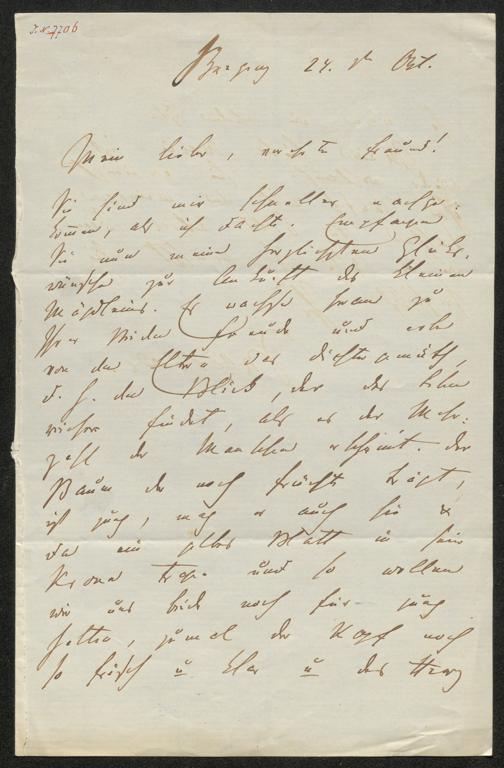 J.N. 7706
24. Okt.
Mein lieber, verehrter Freund!
Sie sind mir schneller nachge-
kommen, als ich dachte. Empfangen
Sie nun meine herzlichsten Glück-
wünsche zur Ankunft des kleinen
Mägdleins. Es wachse heran zu
Ihrer Beider Freude und erbe
von den Eltern das Dichtergemüth,
d. h. den Blick, der das Leben
reicher findet, als es der Mehr-
zahl der Menschen erscheint. Der
Baum der noch Früchte trägt,
ist jung, mag er auch hie &
da ein gelbes Blatt in seiner
Krone tragen und so wollen
wir uns beide noch für jung
halten, zumal der Kopf noch
so frisch u klar u das Herz